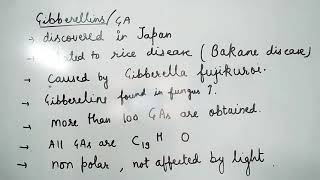 Gibberellins/GA
→ discovered in Japan
→ lated to rice disease (Bakane disease)
→ Caused by Gibberella fujikuroi.
→ Gibberelins found in fungus ↑.
→ more than 100 GAs are obtained.
→ All GAs are C19 H O
→ non polar, not affected by light.